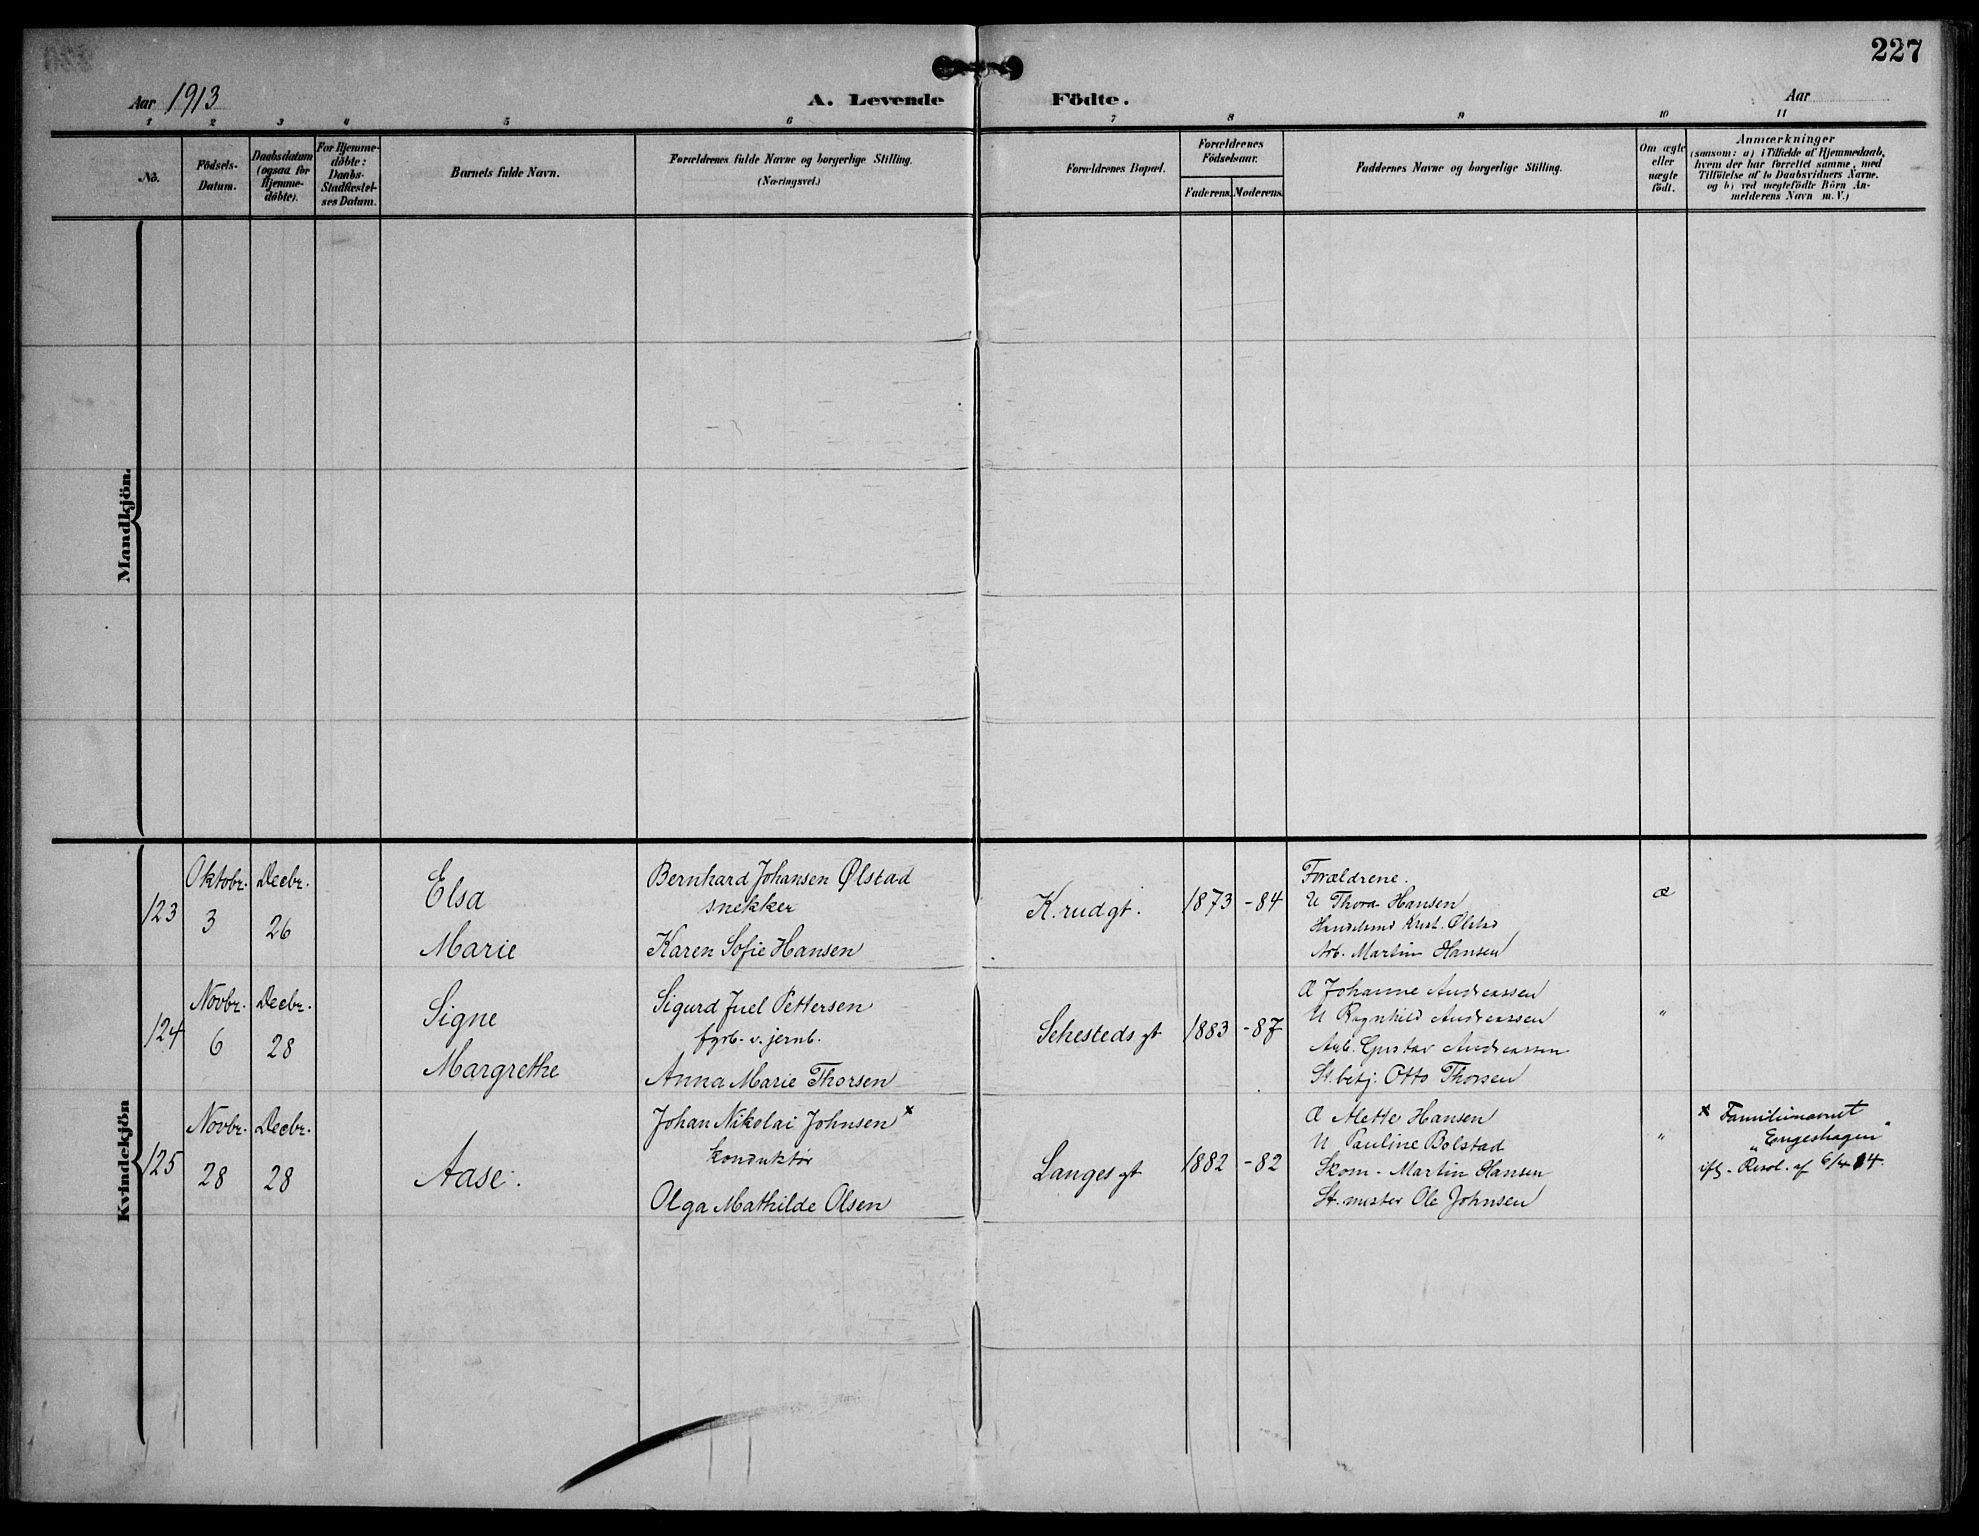 227
Aar 1913
A. Levende Födte.
Aar
1 2 3 4 5 6 7 8 9 10 11
No.
Födsels-
Datum.
Daabsdatum
(ogsaa for
Hjemme-
døbte).
For Hjemme-
døbte:
Daabs-
Stadfæstel-
ses Datum.
Barnets fulde Navn.
Forældrenes fulde Navne og borgerlige Stilling.
(Næringsvei.)
Forældrenes Bopæl.
Forældrenes
Födselsaar.
Faderens. Moderens.
Faddernes Navne og borgerlige Stilling.
Om ægte
eller
uægte
født.
Anmærkninger
(saasom: a) i Tilfælde af Hjemmedaab,
hvem der har forrettet samme, med
Tilføielse af to Daabsvidners Navne.
og b) ved uægtefødte Börn An-
melderens Navn m.V.)
Mandkjön.
Kvindekjön
123
Oktobr.
3
Decbr.
26
Elsa
Marie
Bernhard Johansen Ølstad
snekker
Karen Sofie Hansen
K.rudgt.
1873 -84
Forældrene.
U Thora Hansen
Handelsmd Krist. Ølstad
Arb. Martin Hansen
æ
124
Novbr.
6
Decbr.
28
Signe
Margrethe
Sigurd Juel Pettersen
fyrb. v. jernb.
Anna Marie Thorsen
Sehesteds gt
1883 -87
Œ Johanne Andreassen
U Ragnhild Andreassen
Arb. Gustav Andreassen
St.betj. Otto Thorsen
"
125
Novbr.
28
Decbr.
28
Aase.
Johan Nikolai Johnsen x
konduktør
Olga Mathilde Olsen
Langes gt
1882 -82
Œ Alette Hansen
U Pauline Bolstad
Skom. Martin Hansen
St. mester Ole Johnsen
"
x Familienavnet
"Engeshagen"
ifg. Resol. af 6/4 14.